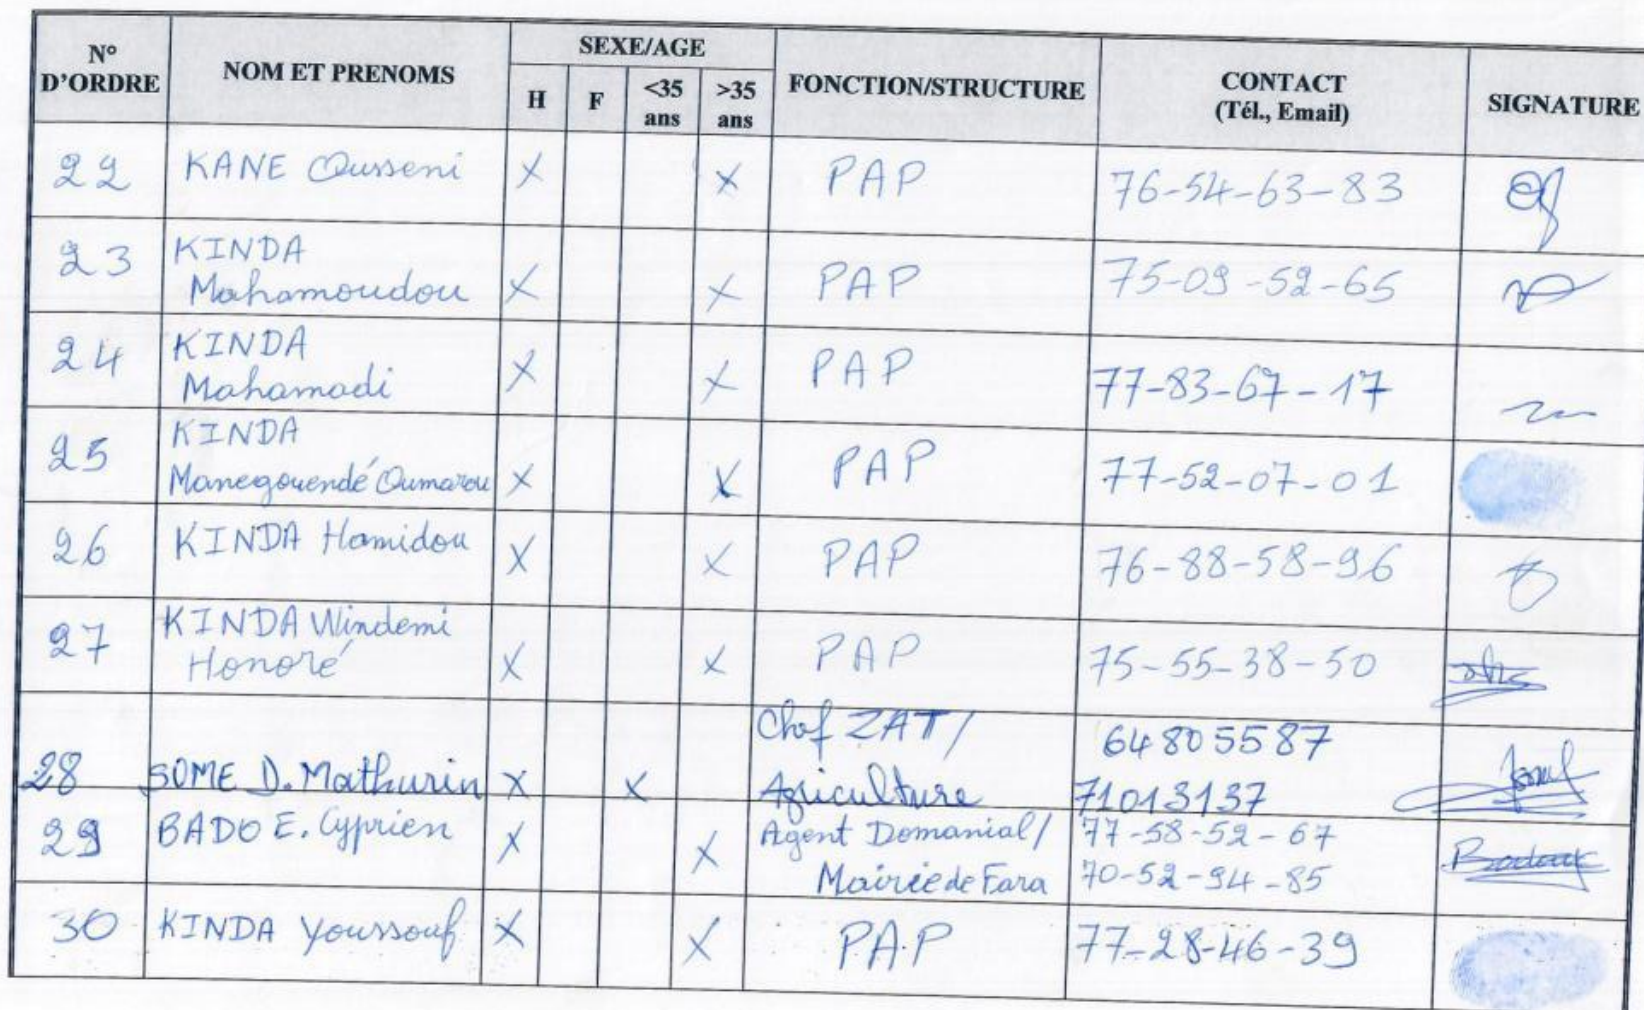 N° D'ORDRE NOM ET PRENOMS SEXE/AGE H F <35 ans >35 ans FONCTION/STRUCTURE CONTACT (Tél., Email) SIGNATURE
22 KANE Ousseni X X PAP 76-54-63-83
23 KINDA
Mahamoudou X X PAP 75-09-52-65
24 KINDA
Mahamadi X X PAP 77-83-67-17
25 KINDA
Manegouendé Oumarou X X PAP 77-52-07-01
26 KINDA Hamidou X X PAP 76-88-58-96
27 KINDA Windemi
Honoré X X PAP 75-55-38-50
Chef ZAT/ 64805587
28 SOME D. Mathurin X X Agriculture 71013137
29 BADO E. Cyprien X X Agent Domanial/ 77-58-52-67
Mairie de Fara 70-52-94-85
30 KINDA Youssouf X X PAP 77-28-46-39